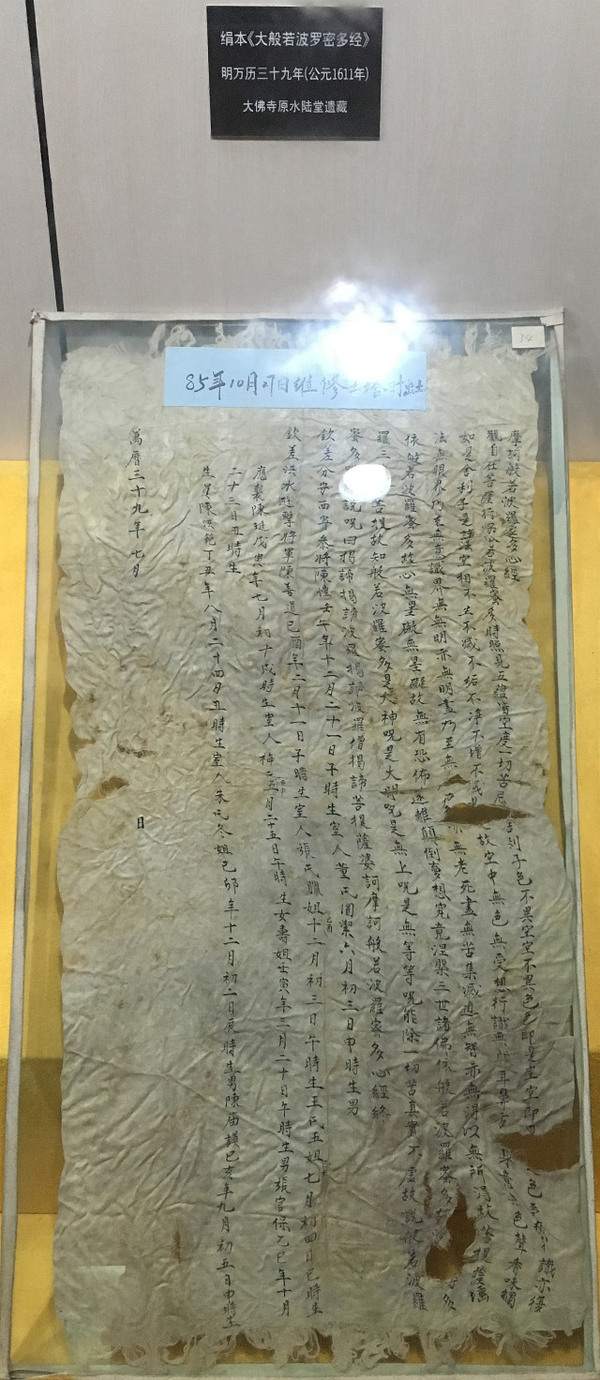 绢本《大般若波罗密多经》
明万历三十九年(公元1611年)
大佛寺原水陆堂遗藏
34
85年10月27日维修土塔时出土
摩訶般若波羅蜜多心經
觀自在菩薩行深般若波羅蜜多時照見五蘊皆空度一切苦厄 舍利子色不異空空不異色色即是空空即 色 識亦復
如是舍利子是諸空相不生不滅不垢不淨不增不減 故空中無色無受想行識無眼耳鼻舌 色聲香味觸
法無眼界乃至無意識界無無明亦無無明盡乃至無 老死盡無苦集滅道無智亦無得以無所得故菩提薩埵
依般若波羅蜜多故心無罣礙無罣礙故無有恐怖遠離顛倒夢想究竟涅槃三世諸佛依般若波羅蜜多 多
羅三 菩提故知般若波羅蜜多是大神呪是大明呪是無上呪是無等等呪能除一切苦真實不虛故說般若波羅
蜜多 說呪曰揭諦揭諦波羅揭諦波羅僧揭諦菩提薩婆訶摩訶般若波羅蜜多心經終
欽差分守西寧參將陳 壬午年十二月二十一日子時生室人董氏 六月初三日申時生男
欽差洪水遊擊將軍陳善道己酉年二月十一日子時生室人張氏 姐十二月初三日午時生王氏五姐七月初四日巳時生
應襲陳 戊 年七月初十戌時生室人 五月二十五日午時生女壽姐壬寅年三月二十日午時生男張官保乙巳年十月
二十三日丑時生
生員陳洪範丁丑年八月二十四日丑時生室人朱氏冬姐己卯年十二月初二日辰時生男陳廟 己亥年九月初五日申時生
萬曆三十九年七月 日